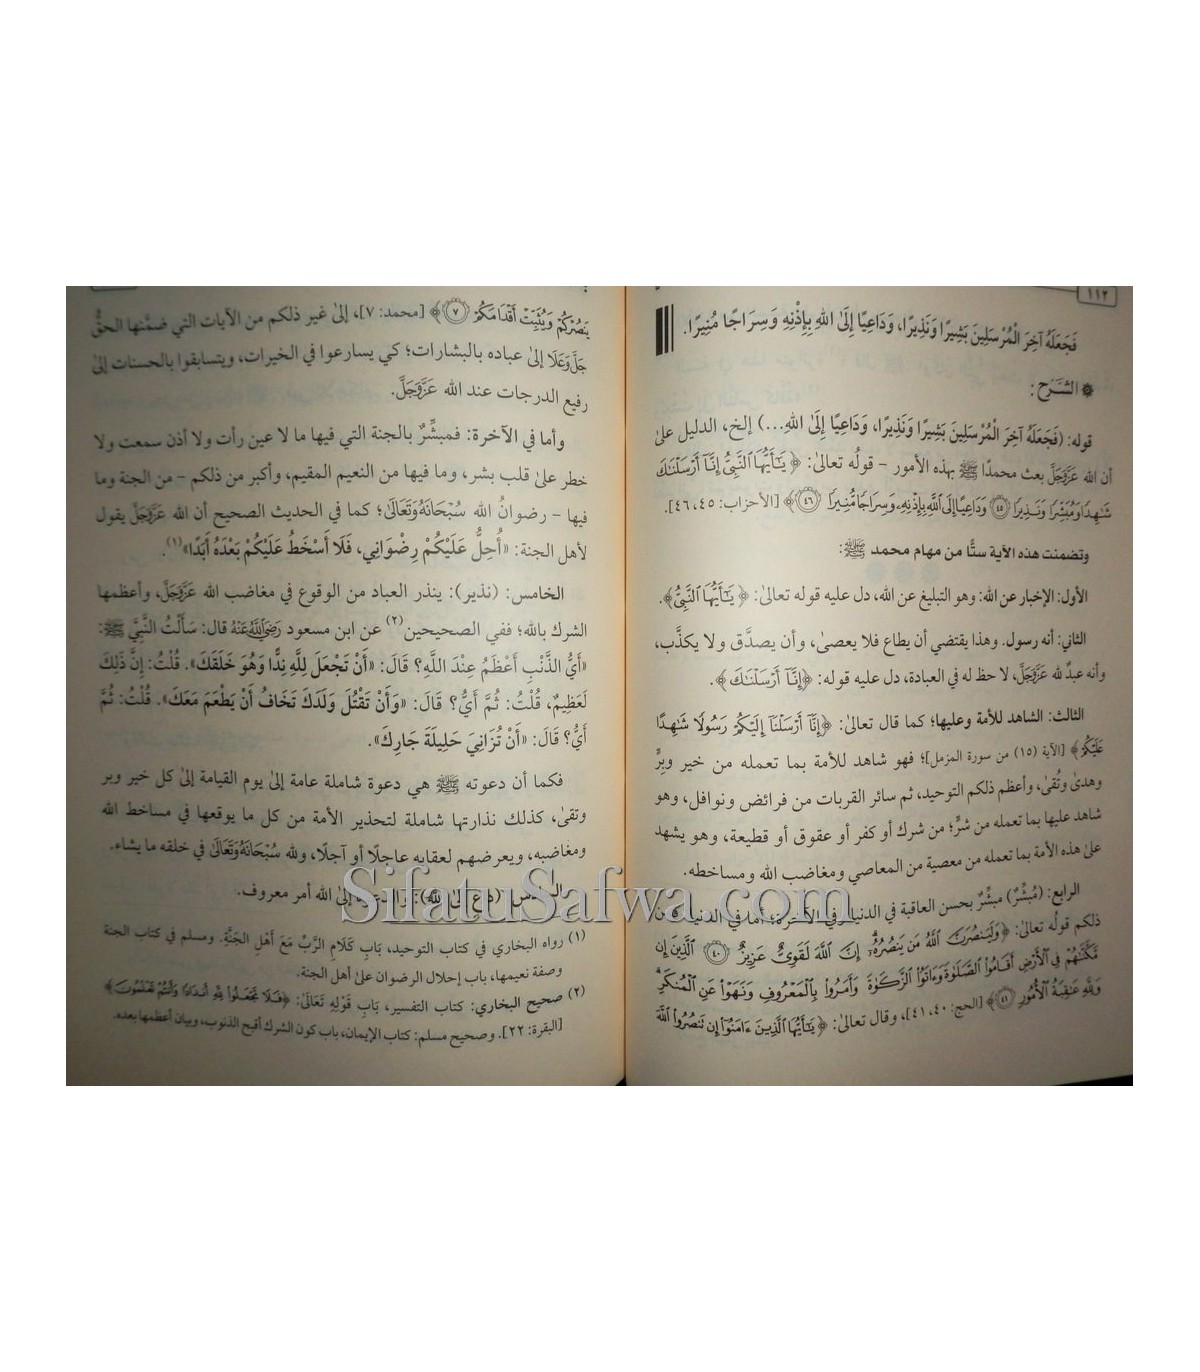 ١١٢
فَجَعَلَهُ آخِرَ الْمُرْسَلِينَ بَشِيرًا وَنَذِيرًا، وَدَاعِيًا إِلَىٰ اللهِ بِإِذْنِهِ وَسِرَاجًا مُنِيرًا.
الشَّرْح:
قوله: (فَجَعَلَهُ آخِرَ الْمُرْسَلِينَ بَشِيرًا وَنَذِيرًا، وَدَاعِيًا إِلَىٰ اللهِ...) إلخ، الدليل علىٰ
أن الله عَزَّوَجَلَّ بعث محمدًا ﷺ بهذه الأمور - قولُه تعالىٰ: ﴿يَٰٓأَيُّهَا ٱلنَّبِيُّ إِنَّآ أَرْسَلْنَٰكَ
شَٰهِدًا وَمُبَشِّرًا وَنَذِيرًا ۝٤٥ وَدَاعِيًا إِلَى ٱللَّهِ بِإِذْنِهِۦ وَسِرَاجًا مُّنِيرًا ۝٤٦﴾ [الأحزاب: ٤٥، ٤٦].
وتضمنت هذه الآية ستًّا من مهام محمد ﷺ:
الأول: الإخبار عن الله: وهو التبليغ عن الله، دل عليه قوله تعالىٰ: ﴿يَٰٓأَيُّهَا ٱلنَّبِيُّ﴾.
الثاني: أنه رسول. وهذا يقتضي أن يطاع فلا يعصىٰ، وأن يصدَّق ولا يكذَّب،
وأنه عبدٌ لله عَزَّوَجَلَّ، لا حظ له في العبادة، دل عليه قوله: ﴿إِنَّآ أَرْسَلْنَٰكَ﴾.
الثالث: الشاهد للأمة وعليها؛ كما قال تعالىٰ: ﴿إِنَّآ أَرْسَلْنَآ إِلَيْكُمْ رَسُولًا شَٰهِدًا
عَلَيْكُمْ﴾ [الآية (١٥) من سورة المزمل]؛ فهو شاهد للأمة بما تعمله من خير وبِرٍّ
وهدىٰ وتُقىٰ، وأعظم ذلكم التوحيد، ثم سائر القربات من فرائض ونوافل، وهو
شاهد عليها بما تعمله من شرٍّ؛ من شرك أو كفر أو عقوق أو قطيعة، وهو يشهد
علىٰ هذه الأمة بما تعمله من معصية من المعاصي ومغاضب الله ومساخطه.
الرابع: (مُبشِّرٌ) مبشِّرٌ بحسن العاقبة في الدنيا وفي الآخرة؛ أما في الدنيا فمن
ذلكم قولُه تعالىٰ: ﴿وَلَيَنصُرَنَّ ٱللَّهُ مَن يَنصُرُهُۥٓ إِنَّ ٱللَّهَ لَقَوِيٌّ عَزِيزٌ ۝٤٠ ٱلَّذِينَ إِن
مَّكَّنَّٰهُمْ فِي ٱلْأَرْضِ أَقَامُوا۟ ٱلصَّلَوٰةَ وَءَاتَوُا۟ ٱلزَّكَوٰةَ وَأَمَرُوا۟ بِٱلْمَعْرُوفِ وَنَهَوْا۟ عَنِ ٱلْمُنكَرِ ۗ
وَلِلَّهِ عَٰقِبَةُ ٱلْأُمُورِ ۝٤١﴾ [الحج: ٤٠، ٤١]، وقال تعالىٰ: ﴿يَٰٓأَيُّهَا ٱلَّذِينَ ءَامَنُوٓا۟ إِن تَنصُرُوا۟ ٱللَّهَ
يَنصُرْكُمْ وَيُثَبِّتْ أَقْدَامَكُمْ ۝٧﴾ [محمد: ٧]، إلىٰ غير ذلكم من الآيات التي ضمَّنها الحقُّ
جَلَّ وَعَلَا إلىٰ عباده بالبشارات؛ كي يسارعوا في الخيرات، ويتسابقوا بالحسنات إلىٰ
رفيع الدرجات عند الله عَزَّوَجَلَّ.
وأما في الآخرة: فمبشِّرٌ بالجنة التي فيها ما لا عين رأت ولا أذن سمعت ولا
خطر علىٰ قلب بشر، وما فيها من النعيم المقيم، وأكبر من ذلكم - من الجنة وما
فيها - رضوانُ الله سُبْحَانَهُ وَتَعَالَىٰ؛ كما في الحديث الصحيح أن الله عَزَّوَجَلَّ يقول
لأهل الجنة: «أُحِلُّ عَلَيْكُمْ رِضْوَانِي، فَلَا أَسْخَطُ عَلَيْكُمْ بَعْدَهُ أَبَدًا»(١).
الخامس: (نذير): ينذر العباد من الوقوع في مغاضب الله عَزَّوَجَلَّ، وأعظمها
الشرك بالله؛ ففي الصحيحين(٢) عن ابن مسعود رَضِيَ اللَّهُ عَنْهُ قال: سَأَلْتُ النَّبِيَّ ﷺ:
«أَيُّ الذَّنْبِ أَعْظَمُ عِنْدَ اللَّهِ؟ قَالَ: «أَنْ تَجْعَلَ لِلَّهِ نِدًّا وَهُوَ خَلَقَكَ». قُلْتُ: إِنَّ ذَلِكَ
لَعَظِيمٌ، قُلْتُ: ثُمَّ أَيُّ؟ قَالَ: «وَأَنْ تَقْتُلَ وَلَدَكَ تَخَافُ أَنْ يَطْعَمَ مَعَكَ». قُلْتُ: ثُمَّ
أَيُّ؟ قَالَ: «أَنْ تُزَانِيَ حَلِيلَةَ جَارِكَ».
فكما أن دعوته ﷺ هي دعوة شاملة عامة إلىٰ يوم القيامة إلىٰ كل خير وبر
وتقىٰ، كذلك نذارتها شاملة لتحذير الأمة من كل ما يوقعها في مساخط الله
ومغاضبه، ويعرضهم لعقابه عاجلًا أو آجلًا، ولله سُبْحَانَهُ وَتَعَالَىٰ في خلقه ما يشاء.
إلىٰ الله أمر معروف.
(١) رواه البخاري في كتاب التوحيد، بَابِ كَلَامِ الرَّبِّ مَعَ أَهْلِ الجَنَّةِ. ومسلم في كتاب الجنة
وصفة نعيمها، باب إحلال الرضوان علىٰ أهل الجنة.
(٢) صحيح البخاري: كتاب التفسير، بَابِ قَوْلِهِ تَعَالَىٰ: ﴿فَلَا تَجْعَلُوا۟ لِلَّهِ أَندَادًا وَأَنتُمْ تَعْلَمُونَ﴾
[البقرة: ٢٢]. وصحيح مسلم: كتاب الإيمان، باب كون الشرك أقبح الذنوب، وبيان أعظمها بعده.
SifatuSafwa.com